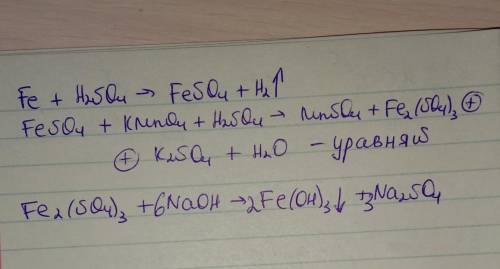 Fe + H₂SO₄ → FeSO₄ + H₂↑
FeSO₄ + KMnO₄ + H₂SO₄ → MnSO₄ + Fe₂(SO₄)₃ ⊕
⊕ K₂SO₄ + H₂O - уравняй
Fe₂(SO₄)₃ + 6NaOH → 2Fe(OH)₃↓ + 3Na₂SO₄